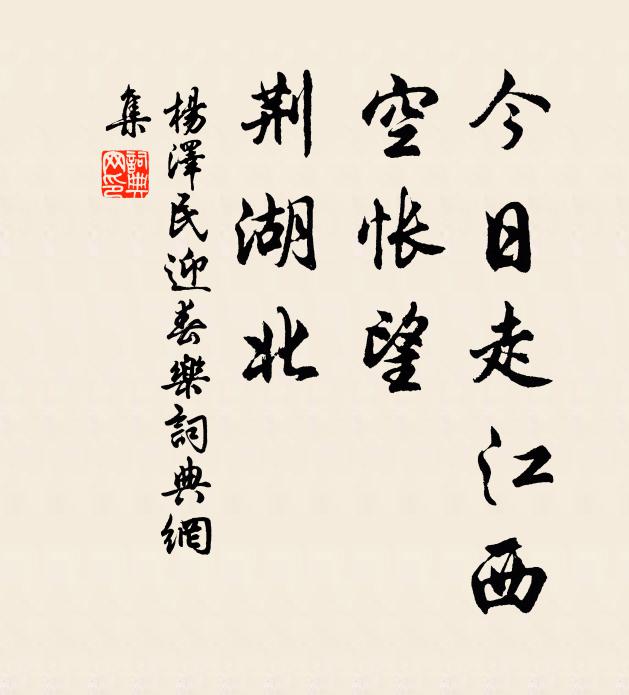 今日走江西
空悵望
荆湖北
楊澤民迎春樂詞典網
集
詞典
网印